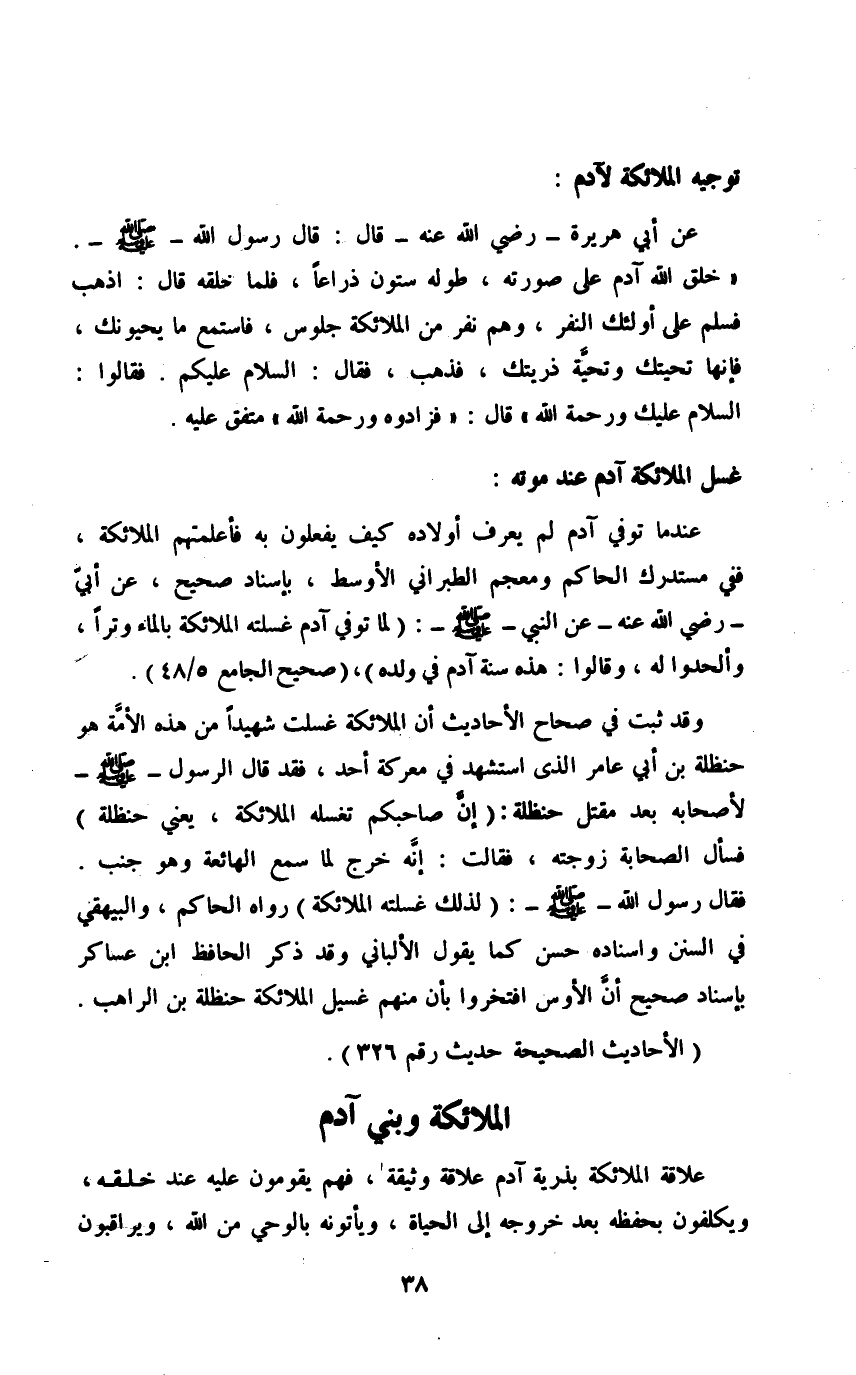 توجيه الملائكة لآدم :
عن أبي هريرة – رضي الله عنه – قال : قال رسول الله – ﷺ – .
« خلق الله آدم على صورته ، طوله ستون ذراعاً ، فلما خلقه قال : اذهب
فسلم على أولئك النفر ، وهم نفر من الملائكة جلوس ، فاستمع ما يحيونك ،
فإنها تحيتك وتحيَّة ذريتك ، فذهب ، فقال : السلام عليكم . فقالوا :
السلام عليك ورحمة الله » قال : « فزادوه ورحمة الله » متفق عليه .
غسل الملائكة آدم عند موته :
عندما توفي آدم لم يعرف أولاده كيف يفعلون به فأعلمتهم الملائكة ،
ففي مستدرك الحاكم ومعجم الطبراني الأوسط ، بإسناد صحيح ، عن أبيّ
– رضي الله عنه – عن النبي – ﷺ – : ( لما توفي آدم غسلته الملائكة بالماء وتراً ،
وألحدوا له ، وقالوا : هذه سنة آدم في ولده ) ، ( صحيح الجامع ٤٨/٥ ) .
وقد ثبت في صحاح الأحاديث أن الملائكة غسلت شهيداً من هذه الأمَّة هو
حنظلة بن أبي عامر الذى استشهد في معركة أحد ، فقد قال الرسول – ﷺ –
لأصحابه بعد مقتل حنظلة : ( إنَّ صاحبكم تغسله الملائكة ، يعني حنظلة )
فسأل الصحابة زوجته ، فقالت : إنَّه خرج لما سمع الهائعة وهو جنب .
فقال رسول الله – ﷺ – : ( لذلك غسلته الملائكة ) رواه الحاكم ، والبيهقي
في السنن واسناده حسن كما يقول الألباني وقد ذكر الحافظ ابن عساكر
بإسناد صحيح أنَّ الأوس افتخروا بأن منهم غسيل الملائكة حنظلة بن الراهب .
( الأحاديث الصحيحة حديث رقم ٣٢٦ ) .
الملائكة وبني آدم
علاقة الملائكة بذرية آدم علاقة وثيقة ، فهم يقومون عليه عند خلقه ،
ويكلفون بحفظه بعد خروجه إلى الحياة ، ويأتونه بالوحي من الله ، ويراقبون
٣٨